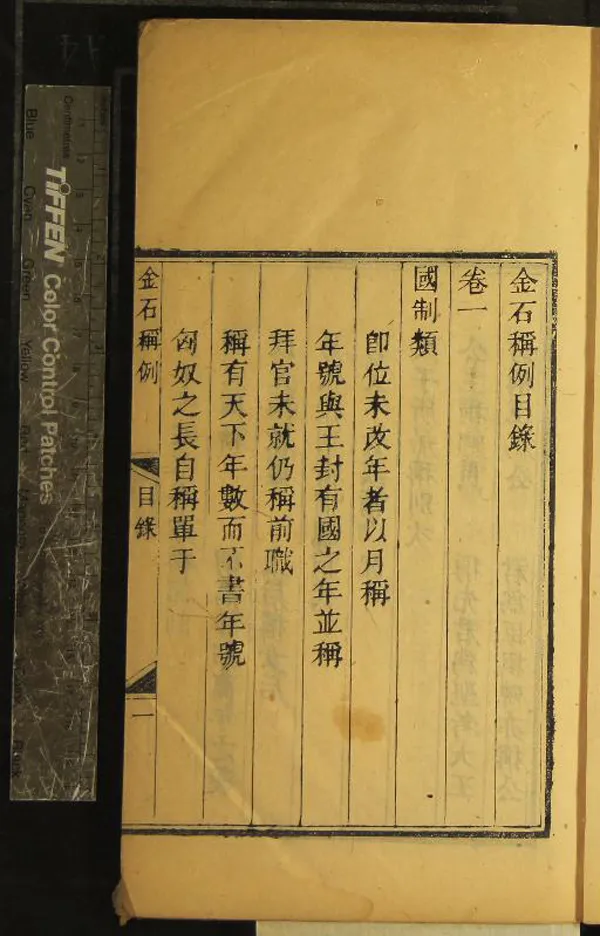 金石稱例目錄
卷一
國制類
卽位未改年者以月稱
年號與王封有國之年並稱
拜官未就仍稱前職
稱有天下年數而不書年號
匈奴之長自稱單于
金石稱例
目錄
一
TIFFEN Color Control Patches
Centimetres
Blue
Cyan
Green
Yellow